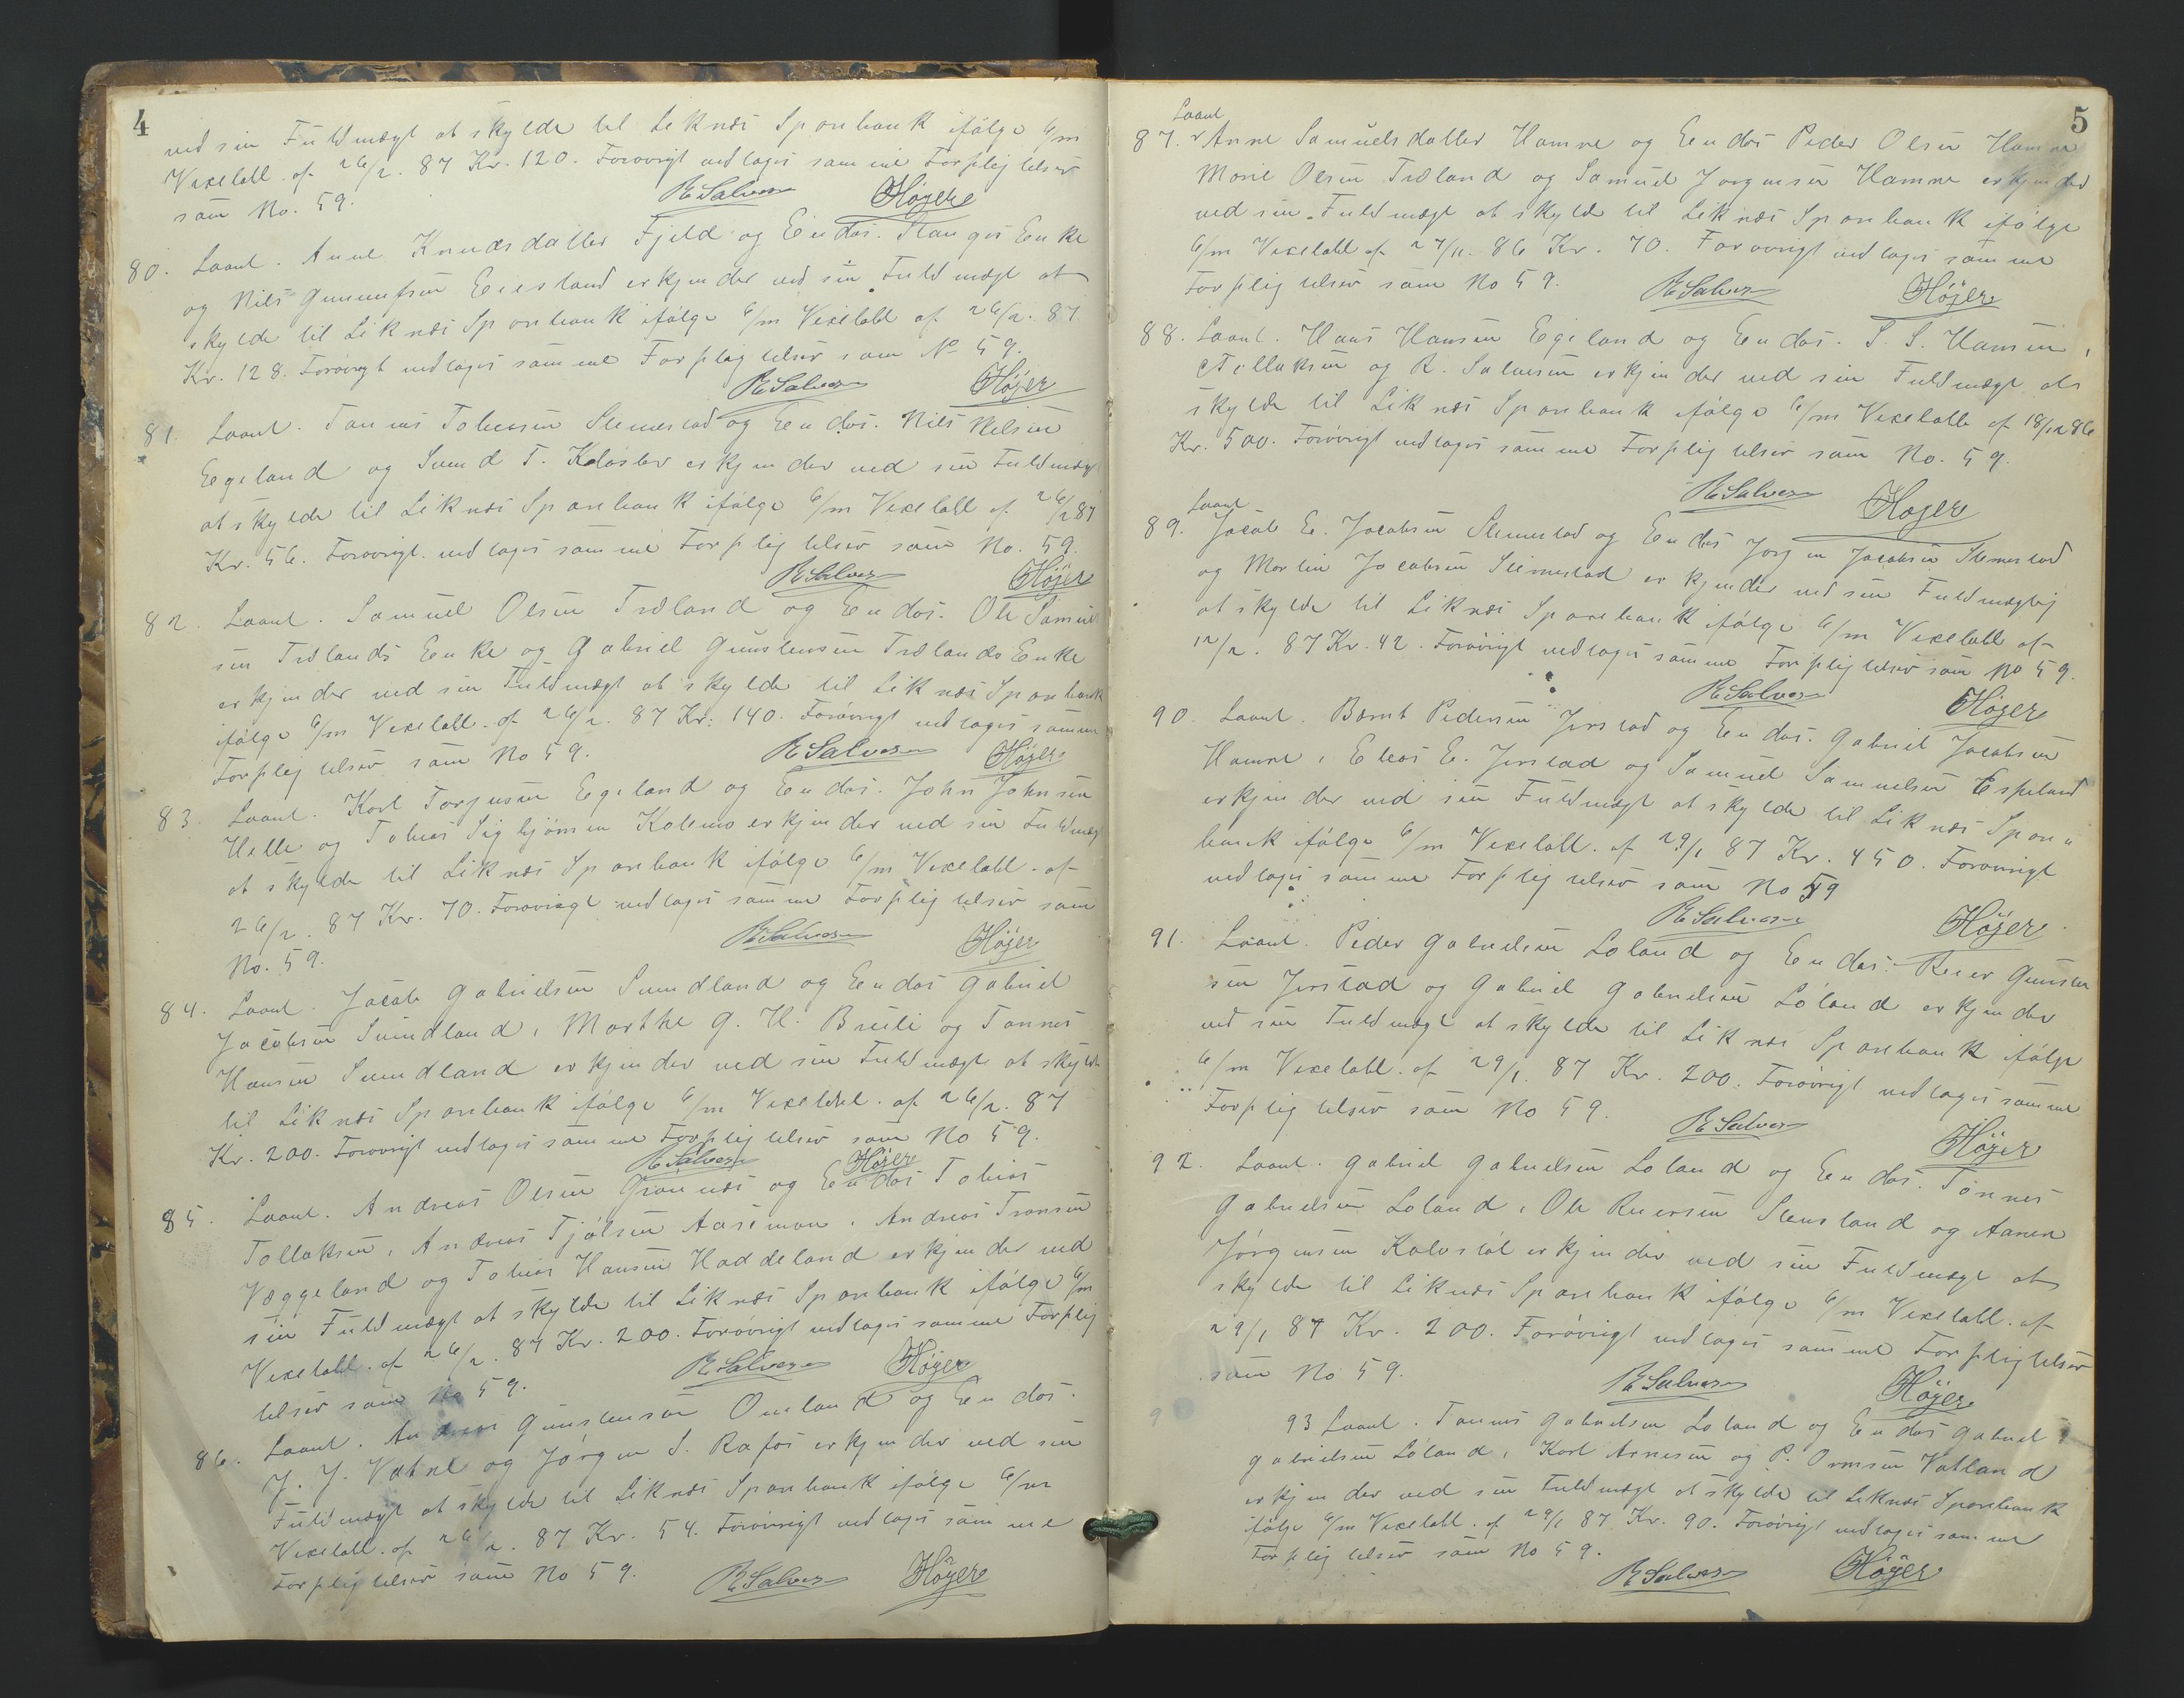 4
ved sin Fuldmægt at skylde til Liknes Sparebank ifølge 6/m
Vexelobl. af 26/2. 87 Kr. 120. Forøvrigt vedtages samme Forpligtelser
som No. 59.
RSalvesen Højer
80. Laant. Anne Knudsdatter Fjeld og Endos. Stanges Enke
og Nils Gunnufsen Eeiesland erkjender ved sin Fuldmægt at
skylde til Liknes Sparebank ifølge 6/m Vexelobl af 26/2. 87
Kr. 128. Forøvrigt vedtages samme Forpligtelser som No 59.
RSalvesen Højer
81. Laant. Tønnes Tobiassen Stemestad og Endos. Nils Nilsen
Egeland og Svend T. Kloster erkjender ved sin Fuldmægt
at skylde til Liknes Sparebank ifølge 6/m Vexelobl af 26/2 87
Kr. 56. Forøvrigt vedtages samme Forpligtelser som No. 59.
RSalvesen Højer
82. Laant. Samuel Olsen Træland og Endos. Ole Samuel
sen Trælands Enke og Gabriel Gunstensen Trælands Enke
erkjender ved sin Fuldmægt at skylde til Liknes Sparebank
ifølge 6/m Vexelobl. af 26/2. 87 Kr: 140. Forøvrigt vedtages samme
Forpligtelser som No 59.
RSalvesen Højer
83. Laant. Karl Torjusen Egeland og Endos. John Johnsen
Helle og Tobias Sigbjørnsen erkjender ved sin Fuldmægt
at skylde til Liknes Sparebank ifølge 6/m Vexelobl. af
26/2. 87 Kr. 70. Forøvrigt vedtages samme Forpligtelser som
No. 59.
RSalvesen Højer
84. Laant. Jacob Gabrielsen Sundland og Endos Gabriel
Jacobsen Sundland, Marthe G. H. Bruli og Tønnes
Hansen Sundland erkjender ved sin Fuldmægt at skylde
til Liknes Sparebank ifølge 6/m Vexelobl. af 26/2. 87
Kr. 200. Forøvrigt vedtages samme Forpligtelser som No 59.
RSalvesen Højer
85. Laant. Andreas Olsen Grannes og Endos Tobias
Tollaksen, Andreas Tjølsen Aasemoen, Andreas Tronsen
Væggeland og Tobias Hansen Haddeland erkjender ved
sin Fuldmægt at skylde til Liknes Sparebank ifølge 6/m
Vexelobl. af 26/2. 87 Kr. 200. Forøvrigt vedtages samme Forplig
telser som No 59.
RSalvesen Højer
86. Laant. Andreas Gunstensen Omland og Endos.
J. J. Vatne og Jørgen S. Rafos erkjender ved sin
Fuldmægt at skylde til Liknes Sparebank ifølge 6/m
Vexelobl. af 26/2. 87 Kr. 54. Forøvrigt vedtages samme
Forpligtelser som No 59.
RSalvesen Højer
5
Laant
87. Anne Samuelsdatter Hamre og Endos Peder Olsen Hamre
Marie Olsen Træland og Samuel Jørgensen Hamre erkjender
ved sin Fuldmægt at skylde til Liknes Sparebank ifølge
6/m Vexelobl af 27/11. 86 Kr. 70. Forøvrigt vedtages samme
Forpligtelser som No 59.
RSalvesen Højer
88. Laant. Hans Hansen Egeland og Endos. S. S. Hamsen,
Tollaksen og R. Salvesen erkjender ved sin Fuldmægt at
skylde til Liknes Sparebank ifølge 6/m Vexelobl af 18/12 86
Kr. 500. Forøvrigt vedtages samme Forpligtelser som No. 59.
RSalvesen Højer
Laant
89. Jacob E. Jacobsen Stemestad og Endos Jørgen Jacobsen Stemestad
og Martin Jacobsen Stemestad erkjender ved sin Fuldmægtig
at skylde til Liknes Sparebank ifølge 6/m Vexelobl af
12/2. 87 Kr. 42. Forøvrigt vedtages samme Forpligtelser som No 59.
RSalvesen Højer
90. Laant. Bernt Pedersen Jerstad og Endos. Gabriel Jacobsen
Hamre, Elias E. Jerstad og Samuel Samuelsen Espeland
erkjender ved sin Fuldmægt at skylde til Liknes Spare
bank ifølge 6/m Vexelobl. af 29/1 87 Kr. 450. Forøvrigt
vedtages samme Forpligtelser som No 59
RSalvesen Højer
91. Laant. Peder Gabrielsen Løland og Endos. Reier Gunsten
sen Jerstad og Gabriel Gabrielsen Løland erkjender
ved sin Fuldmægt at skylde til Liknes Sparebank ifølge
6/m Vexelobl. af 29/1. 87 Kr. 200. Forøvrigt vedtages samme
Forpligtelser som No 59.
RSalvesen Højer
92. Laant. Gabriel Gabrielsen Løland og Endos. Tønnes
Gabrielsen Løland, Ole Reiersen Stensland og Aanen
Jørgensen erkjender ved sin Fuldmægt at
skylde til Liknes Sparebank ifølge 6/m Vexelobl. af
29/1 87 Kr. 200. Forøvrigt vedtages samme Forpligtelser
som No 59.
RSalvesen Højer
9
93 Laant. Tønnes Gabrielsen Løland og Endos Gabriel
Gabrielsen Løland, Karl Arnesen og P. Ormsen Vatland
erkjender ved sin Fuldmægt at skylde til Liknes Sparebank
ifølge 6/m Vexelobl. af 29/1 87 Kr. 90. Forøvrigt vedtages samme
Forpligtelser som No 59.
RSalvesen Højer